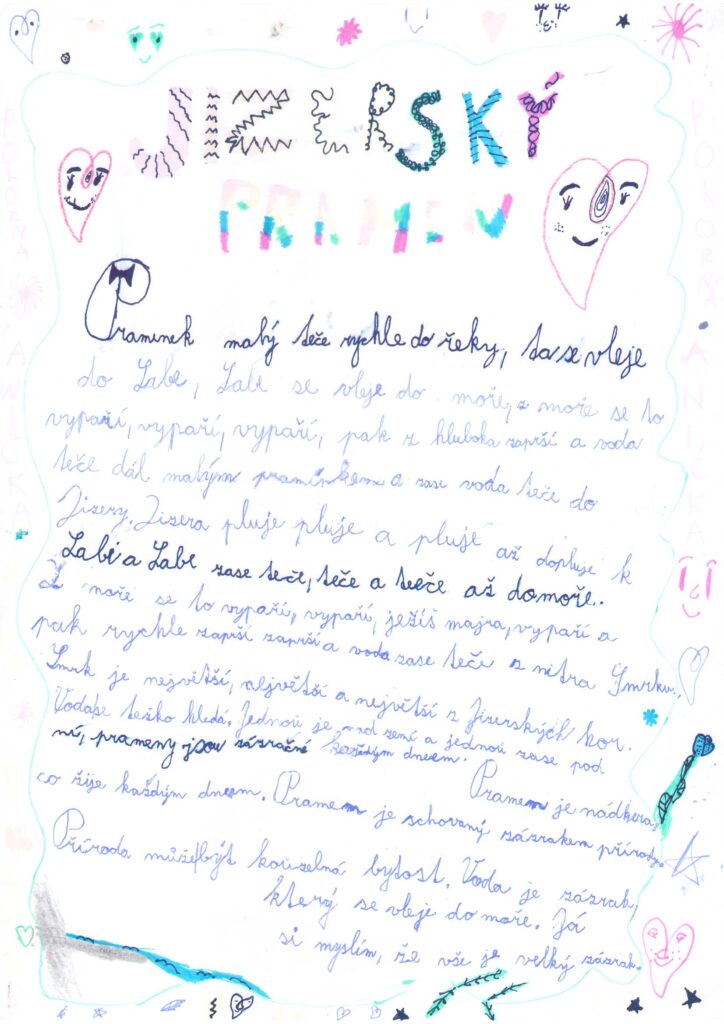 JIZERSKÝ
PRAMEN
Pramínek malý teče rychle do řeky, ta se vleje
do Labe, Labe se vleje do moře, z moře se to
vypaří, vypaří, vypaří, pak z hluboka zaprší a voda
teče dál malým pramínkem a zase voda teče do
Jizery. Jizera pluje pluje a pluje až dopluje k
Labi a Labe zase teče, teče a teeče až do moře..
Z moře se to vypaří, vypaří, ježíš majra, vypaří a
pak rychle zaprší zaprší a voda zase teče z nitra Smrku..
Smrk je největší, největší a největší z Jizerských hor.
Voda se težko hledá. Jednou je nad zemí a jednou zase pod
ní, prameny jsou zázračné každým dnem.
Pramen je nádhera,
co žije každým dnem. Pramen je schovaný zázrakem přírody.
Příroda může být kouzelná bytost. Voda je zázrak,
který se vleje do moře. Já
si myslím, že vše je velký zázrak.
POKORNÁ ANIČKA
POKORNÁ ANIČKA